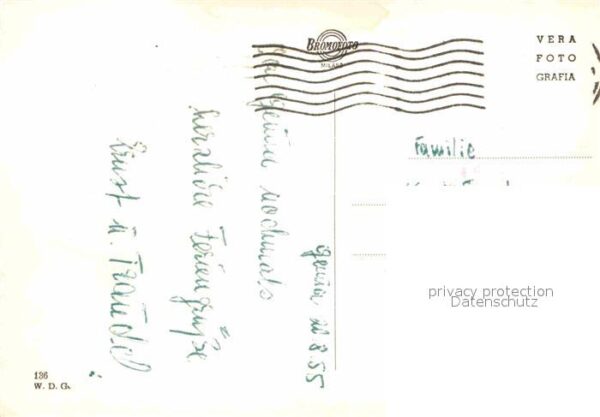 BROMOFOTO
MILANO
VERA
FOTO
GRAFIA
Familie
Genua 8.55
Genua nochmals
herzliche Feriengrüße
Ernst u. Traudel
privacy protection
Datenschutz
136
W. D. G.